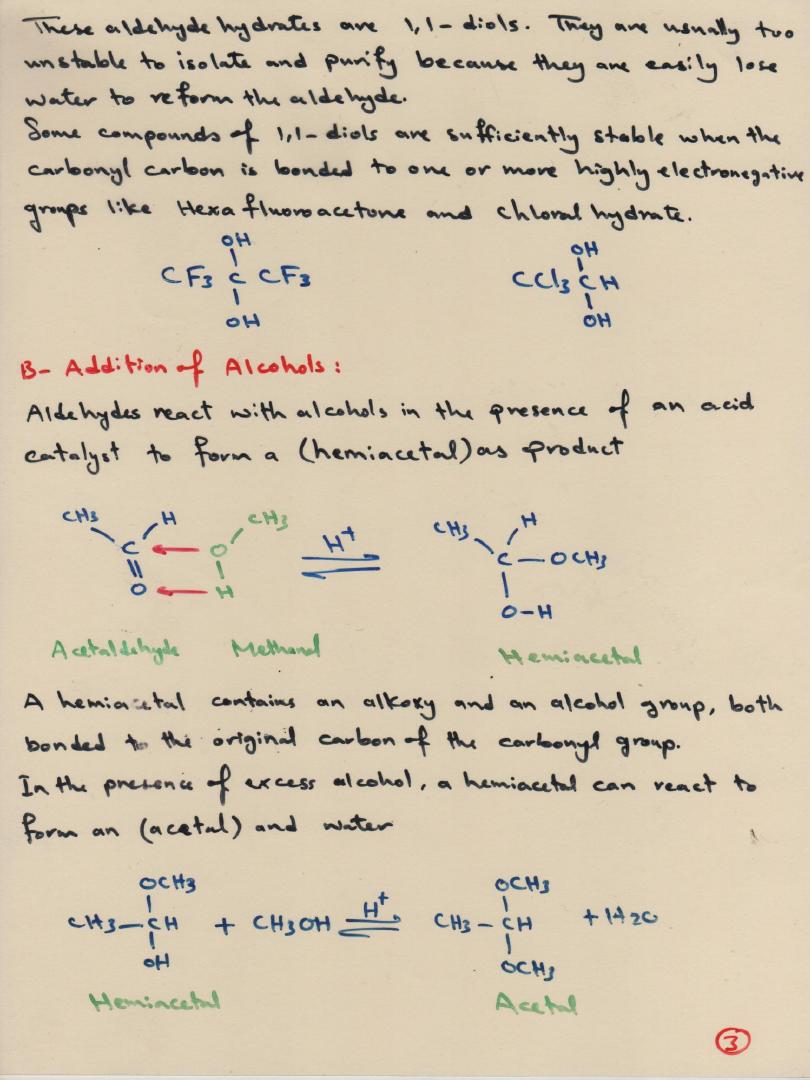 These aldehyde hydrates are 1,1-diols. They are usually too
unstable to isolate and purify because they are easily lose
water to reform the aldehyde.
Some compounds of 1,1-diols are sufficiently stable when the
carbonyl carbon is bonded to one or more highly electronegative
groups like Hexafluoroacetone and chloral hydrate.
OH OH
CF3 C CF3 CCl3 CH
OH OH
B- Addition of Alcohols:
Aldehydes react with alcohols in the presence of an acid
catalyst to form a (hemiacetal) as product
CH3 H CH3 CH3 H
C O H+ C - OCH3
O H O-H
Acetaldehyde Methanol Hemiacetal
A hemiacetal contains an alkoxy and an alcohol group, both
bonded to the original carbon of the carbonyl group.
In the presence of excess alcohol, a hemiacetal can react to
form an (acetal) and water
OCH3 OCH3
CH3-CH + CH3OH H+ CH3-CH + H2O
OH OCH3
Hemiacetal Acetal
3